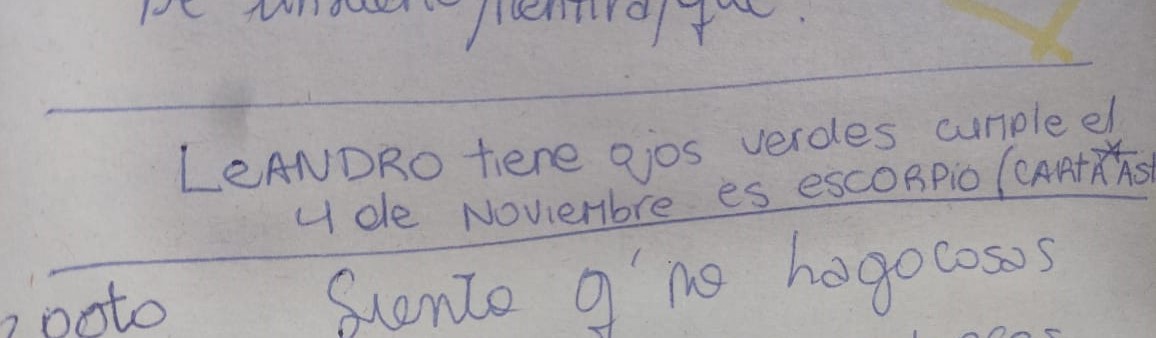 LeANDRO tiene ojos verdes cumple el
4 de Noviembre es escorpio (CARTA Ast
Siento q' no hago cosas